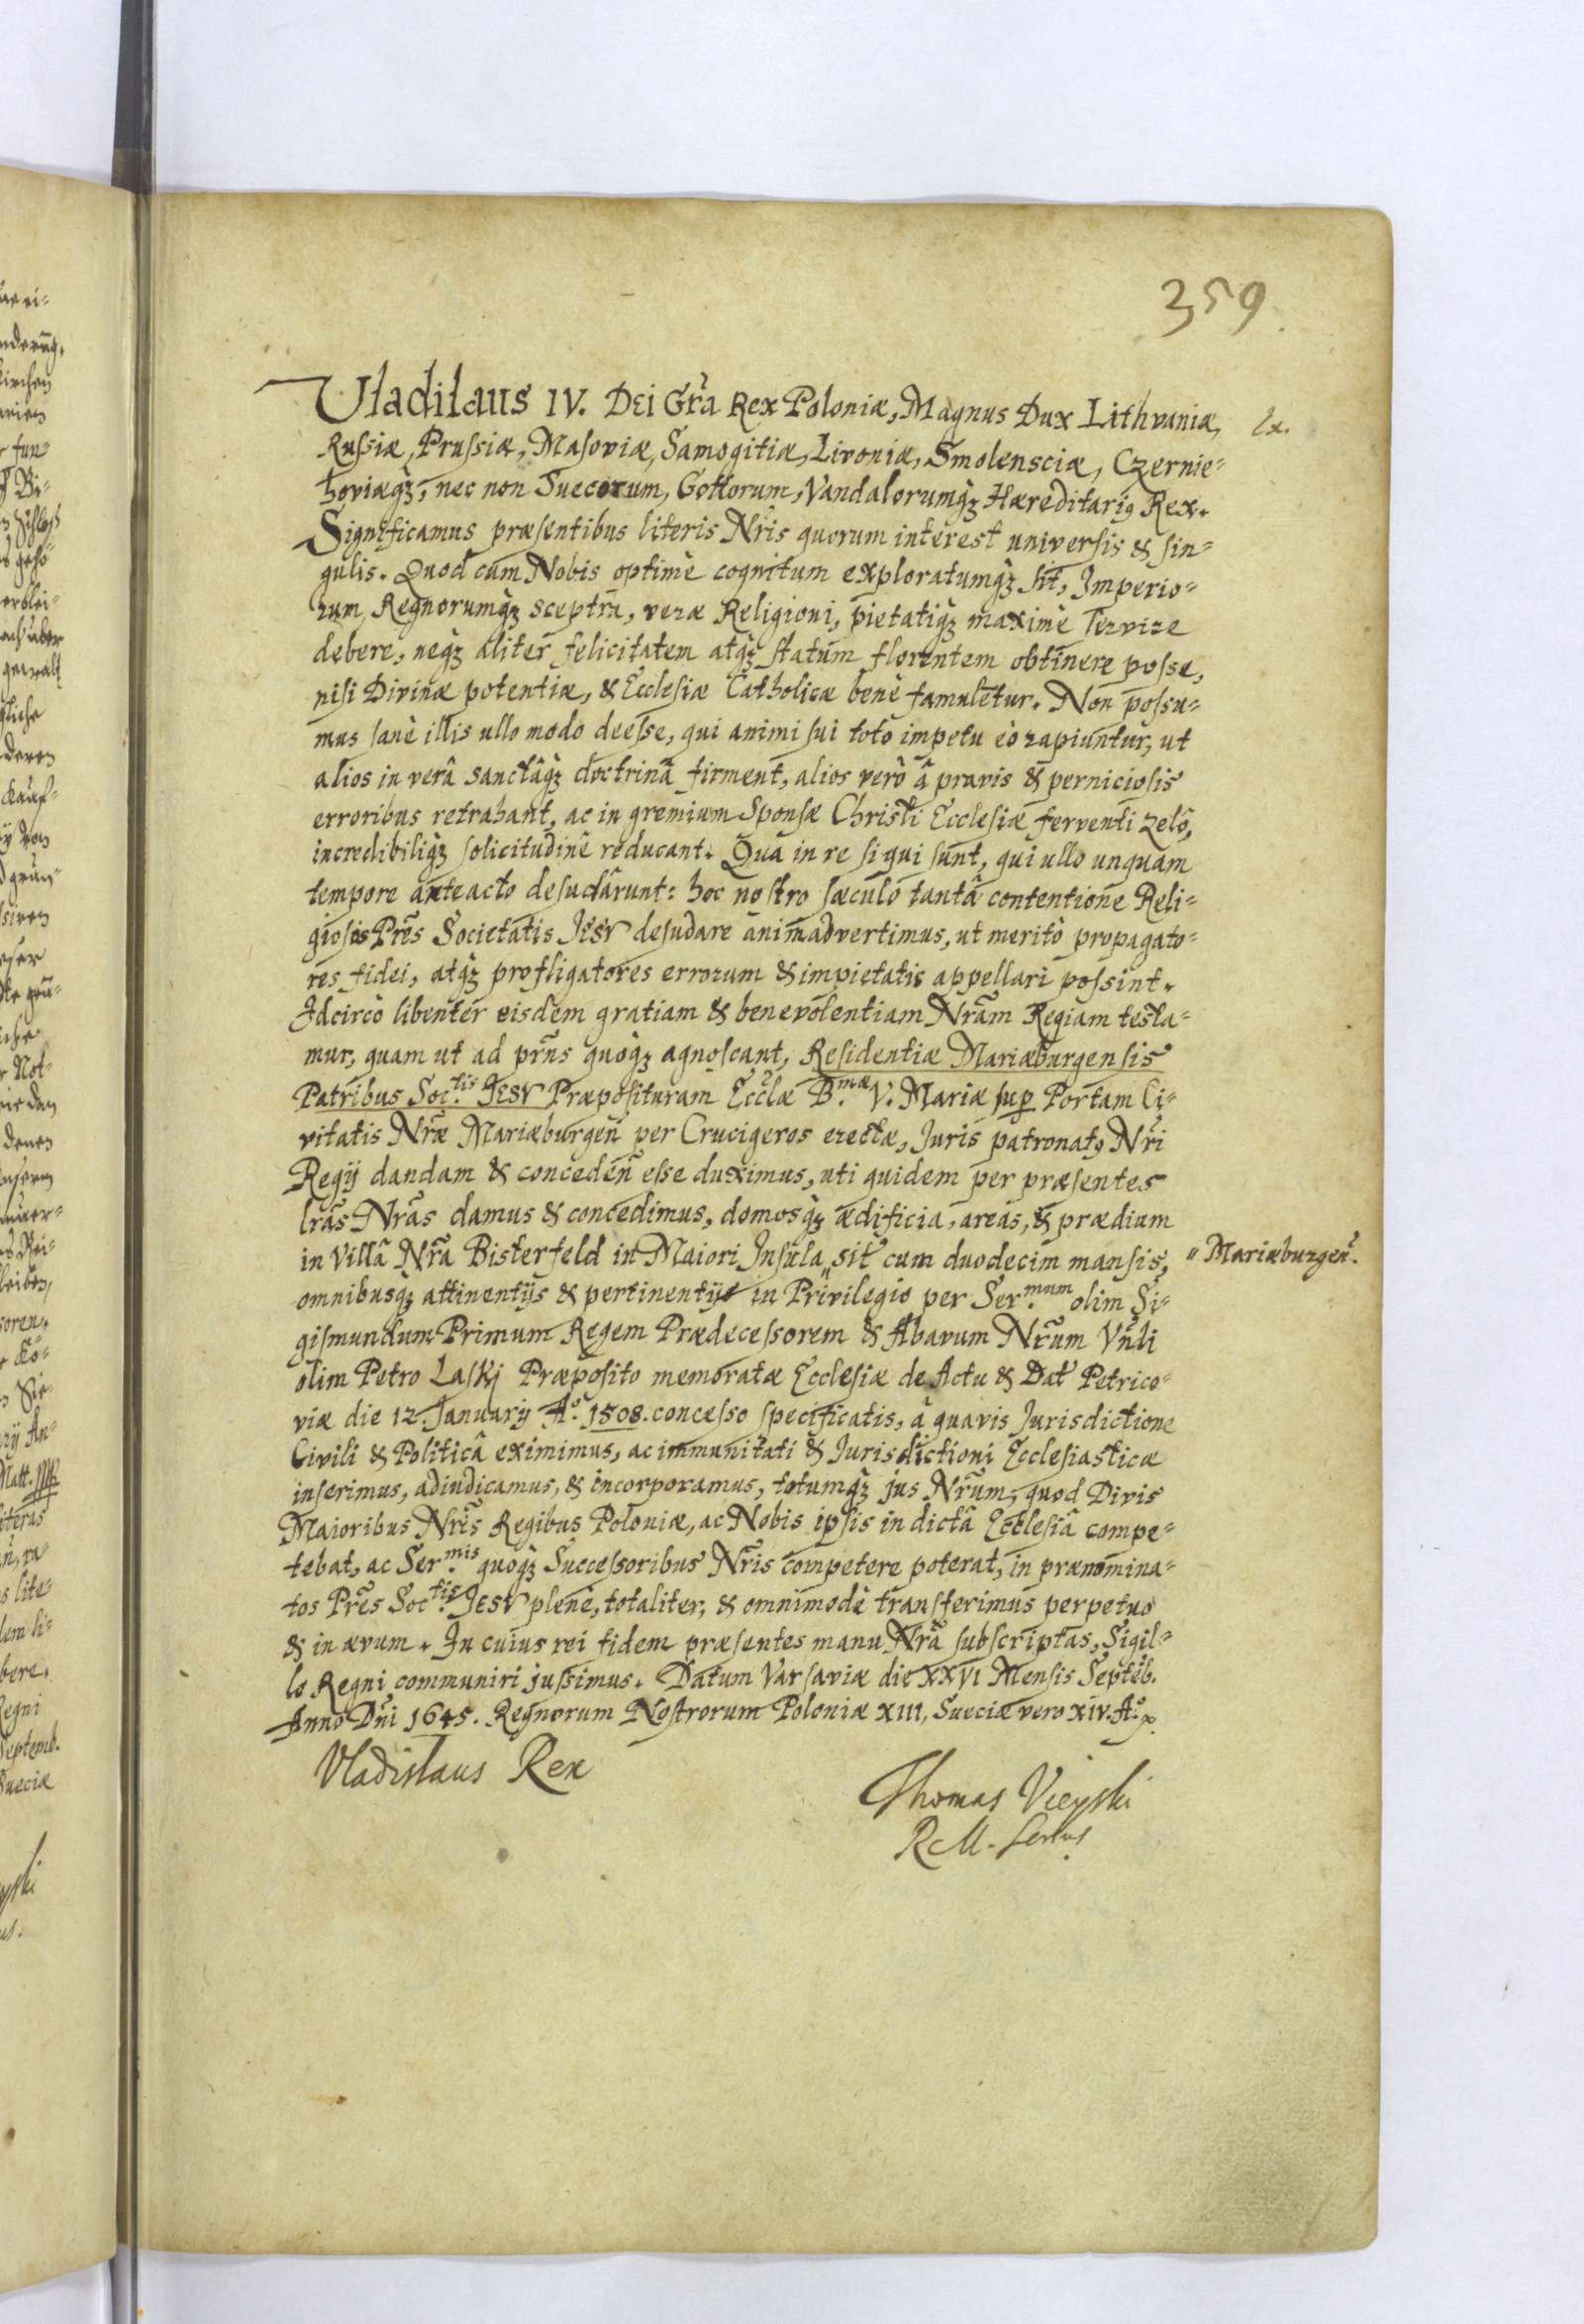 359.
Vladilaus IV. DEI Gr̃a Rex Poloniæ, Magnus Dux Lithvaniæ,
Russiæ, Prussiæ, Masoviæ, Samogitiæ, Livoniæ, Smolensciæ, Czernie=
hoviæq́ꝫ, nec non Suecorum, Gottorum, Vandalorumq́ꝫ Hæreditariꝯ Rex.
Significamus præsentibus literis Nr̃is quorum interest universis & sin=
gulis. Quod cum Nobis optimè cognitum exploratumq́ꝫ sit, Imperio=
rum, Regnorumq́ꝫ sceptra, veræ Religioni, pietatiq́ꝫ maximè servire
debere, neq́ꝫ aliter felicitatem atq́ꝫ statum florentem obtinere posse,
nisi Divinæ potentiæ, & Ecclesiæ Catholicæ benè famuletur. Non possu=
mus sanè illis ullo modo deesse, qui animi sui toto impetu eò rapiuntur, ut
alios in verâ sanctâq́ꝫ doctrinâ firment, alios verò â pravis & perniciosis
erroribus retrahant, ac in gremium Sponsæ Christi Ecclesiæ ferventi zelô,
incredibiliq́ꝫ solicitudine reducant. Qua in re si qui sunt, qui ullo unquam
tempore anteacto desudârunt: hoc nostro sæculo tantâ contentione Reli=
giosos Pr̃es Societatis IESV desudare animadvertimus, ut meritò propagato=
res fidei, atq́ꝫ profligatores errorum & impietatis appellari possint.
Idcircò libenter eisdem gratiam & benevolentiam Nr̃am Regiam testa=
mur, quam ut ad pr̃ns quoq́ꝫ agnoscant, Residentiæ Mariæburgensis
Patribus Soc.tis IESV Præposituram Ecclæ B.mæ V. Mariæ sup Portam Ci=
vitatis Nr̃æ Mariæburgen̄ per Crucigeros erectæ, Juris patronatꝯ Nr̃i
Regij dandam & conceden̄ esse duximus, uti quidem per præsentes
lr̃as Nr̃as damus & concedimus, domosq́ꝫ ædificia, areas, & prædium
in Villâ Nr̃a Bisterfeld in Maiori Insula „ sit̃ cum duodecim mansis, „ Mariæburgen̄.
omnibusq́ꝫ attinentijs & pertinentijs in Privilegio per Ser.mum olim Si=
gismundum Primum Regem Prædecessorem & Abavum Nr̃um Vñli
olim Petro Laskj Præposito memoratæ Ecclesiæ de Actu & Dat̃ Petrico=
viæ die 12. January Aº. 1508. concesso specificatis, â quavis Jurisdictione
Civili & Politicâ eximimus, ac immunitati & Jurisdictioni Ecclesiasticæ
inserimus, adiudicamus, & incorporamus, totumq́ꝫ jus Nr̃um, quod Divis
Maioribus Nr̃is Regibus Poloniæ, ac Nobis ipsis in dictâ Ecclesiâ compe=
tebat, ac Ser.mis quoq́ꝫ Successoribus Nr̃is competere poterat, in prænomina=
tos Pr̃es Soctis. IESV plenè, totaliter, & omnimodè transferimus perpetuo
& in ævum. In cuius rei fidem præsentes manu Nr̃â subscriptas, Sigil=
lo Regni communiri jussimus. Datum Varsaviæ die XXVI Mensis Septẽb.
Anno Dñi 1645. Regnorum Nostrorum Poloniæ XIII, Sueciæ vero XIV. Aº.
Vladislaus Rex
Thomas Vieyski
R. M. Secrus